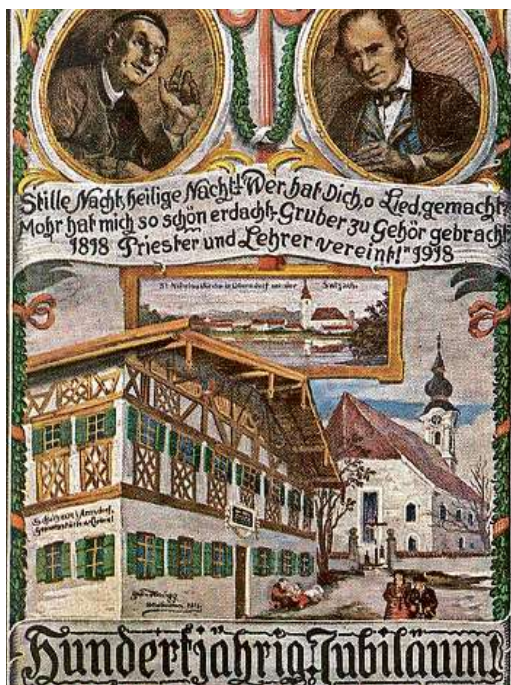 Stille Nacht, heilige Nacht! Wer hat Dich, o Lied, gemacht?
Mohr hat mich so schön erdacht, Gruber zu Gehör gebracht
1818 Priester und Lehrer vereint!" 1918
St. Nikolauskirche in Oberndorf an der Salzach.
Schulhaus i/Arnsdorf,
Hundertjährig. Jubiläum!